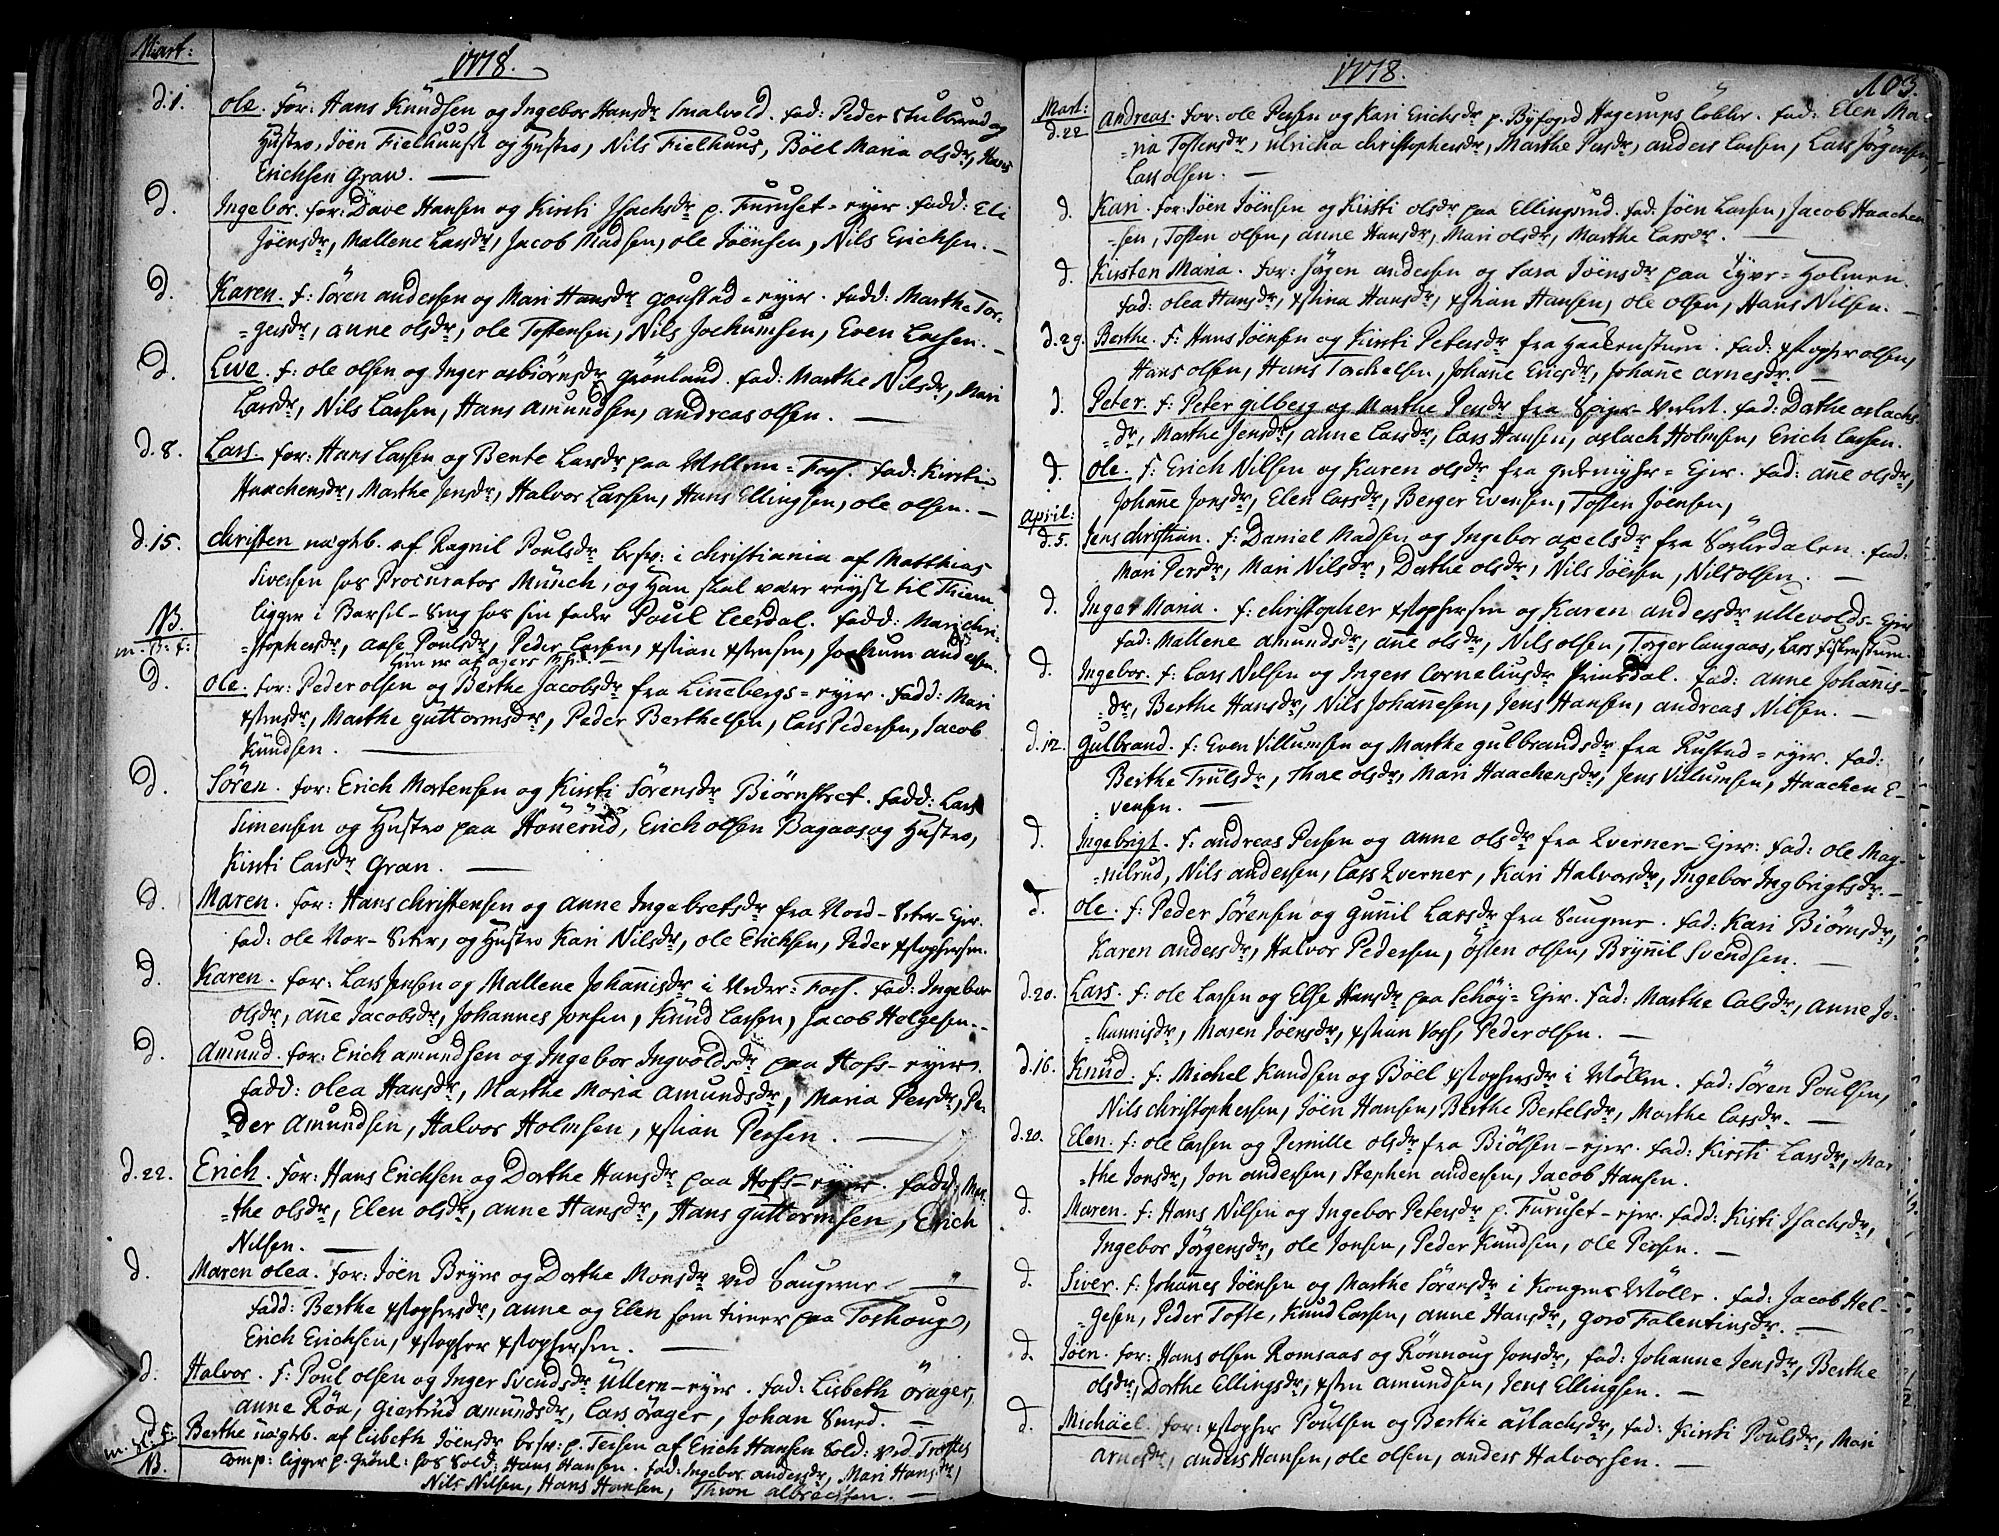 Mart:
1778.
d. 1. Ole. for: Hans Knudsen og Ingebor Hansdr Smalvold. fad: Peder Stulsrud og
Hustro, Jöen Fielhuus og Hustro, Nils Fielhuus, Böel Maria olsdr, Hans
Erichsen Graw. —
d. Ingebor. for: Dave Hansen og Kirsti Isachsdr p. Furuset-eyer. fadd: Eli
Jöensdr, Mallene Larsdr, Jacob Madsen, ole Jöensen, Nils Erichsen. —
d. Karen. f: Sören andersen og Mari Hansdr goustad-eyer. fadd: Marthe Tor-
=gersdr, anne olsdr, ole Tostensen, Nils Jochumsen, Even Larsen. —
d. Live. f: ole olsen og Inger asbiörnsdr grönland. fad: Marthe Nilsdr, Mari
Larsdr, Nils Larsen, Hans amundsen, andreas olsen. —
d. 8. Lars. for: Hans Larsen og Bente Larsdr paa Mellem-Fors. fad: Kirsti
Haachensdr, Marthe Jensdr, Halvor Larsen, Hans Ellingsen, ole olsen. —
d. 15. Christen uægtb. af Ragnil Poulsdr besv: i Christiania af Matthias
Siversen hos Procurator Münch, og Han skal være reyst til Thiem
ligger i Barsel-Seng hos sin fader Poul Leerdal. fadd: Mari Chri-
NB.
m. S: f: =stophersdr, aase Poulsdr, Peder Larsen, xstian xstensen, Jochum andersen.
d. Ole. for: Peder olsen og Berthe Jacobsdr fra Linnebergs-eyer. fadd: Mari
xstensdr, Marthe guttormsdr, Peder Berthelsen, Lars Pedersen, Jacob
Knudsen. —
d. Sören. for: Erich Mortensen og Kirsti Sörensdr Biörnstret. fadd: Lars
Simensen og Hustro paa Hönerud, Erich olsen Bagaas og Hustro,
Kirsti Larsdr Gran. —
d. Maren. for: Hans Christensen og anne Ingebretsdr fra Nord-Seter-Ejer.
fad: ole Nor-Seter, og Hustro Kari Nilsdr, ole Erichsen, Peder xstophersen.
d. Karen. for: Lars Jensen og Mallene Johannisdr i Neder-Fors. fad: Ingebor
olsdr, anne Jacobsdr, Johannes Jonsen, Knud Larsen, Jacob Helgesen. —
d. Amund. for: Erich amundsen og Ingebor Ingvoldsdr paa Hofs-eyer.
fadd: olea Hansdr, Marthe Maria amundsdr, Maria Persdr, Pe-
=der Amundsen, Halvor Holmsen, xstian Persen. —
d. 22. Erich. for: Hans Erichsen og Dorthe Hansdr paa Hofs-eyer. fadd: Mar-
=the olsdr, Elen olsdr, anne Hansdr, Hans guttormsen, Erich
Nilsen. —
d. Maren olea. for: Jöen Bryer og Dorthe Monsdr ved Saugene —
fadd: Berthe xstophersdr, anne og Elen som tiener paa Toshoug,
Erich Erichsen, xstopher xstophersen. —
d. Halvor. f: Poul olsen og Inger Svendsdr Ullern-eyer. fad: Lisbeth örager,
anne Röa, Giertrud amundsdr, Lars örager, Johan Smed. —
d. Berthe uægtb. af Lisbeth Jöensdr besv: p. Teisen af Erich Hansen Sold: ved
m. St: f:
NB. Comp: ligger p. Grönl: hos Sold: Hans Hansen. fad: Ingebor andersdr, Mari Hansdr,
Nils Nilsen, Hans Hansen, Thron albrecssen. —
1778.
103.
Mart:
d. 22 andreas. for: ole Persen og Kari Erichsdr p. Byfoged Hagerups Lökke. fad: Elen Ma-
=na Tostensdr, Ulricha Christophersdr, Marthe Persdr, anders Larsen, Lars Jörgensen,
Lars olsen. —
d. Kari. for: Jöen Jöensen og Kirsti olsdr paa Ellingsrud. fad: Jöen Larsen, Jacob Haachen-
=sen, Tosten olsen, anne Hansdr, Mari olsdr, Marthe Larsdr. —
d. Kirsten Maria. for: Jörgen andersen og Sara Jöensdr paa Tyve-Holmen.
fad: olea Hansdr, xstina Hansdr, xstian Hansen, ole olsen, Hans Nilsen. —
d. 29. Berthe. f: Hans Jöensen og Kirsti Petersdr fra Haakenstuen. fad: xstopher olsen,
Hans olsen, Hans Torkelsen, Johanne Ericsdr, Johanne arnesdr. —
d. Peter. f: Peter gilberg og Marthe Persdr fra Spiger-Verket. fad: Dorthe aslachs-
=dr, Marthe Jensdr, anne Larsdr, Lars Hansen, aslach Holmsen, Erich Larsen.
d. ole. f: Erich Nilsen og Karen olsdr fra -Ejer. fad: anne olsdr,
Johanne Jonsdr, Elen Larsdr, Berger Evensen, Tosten Jöensen,
april:
d. 5. Jens Christian. f: Daniel Madsen og Ingebor axelsdr fra Sörkedalen. fad:
Mari Persdr, Mari Nilsdr, Dorthe olsdr, Nils Jöensen, Nils olsen. —
d. Inger Maria. f: Christopher xstophersen og Karen andersdr ullevolds-Ejer
fad: Mallene amundsdr, anne olsdr, Nils olsen, Torger Langaas, Lars.
d. Ingebor. f: Lars Nilsen og Inger Corneliusdr Prinsdal. fad: anne Johannis-
=dr, Berthe Hansdr, Nils Johannesen, Jens Hansen, andreas Nilsen. —
d. 12. Gulbrand. f: Even Villumsen og Marthe gulbrandsdr fra Rustad-eyer. fad:
Berthe Trulsdr, Thore olsdr, Mari Haachensdr, Jens Villumsen, Haachen E-
=vensen. —
d. Ingebrigt. f: andreas Persen og anne olsdr fra Zverner-Ejer: fad: ole Mag-
=nilrud, Nils andersen, Lars Zverner, Kari Halvorsdr, Ingebor Ingbrigtsdr. —
d. ole. f: Peder Sörensen og Gunnil Larsdr fra Saugene. fad: Kari Biörnsdr,
Karen andersdr, Halvor Pedersen, östen olsen, Brynnil Svendsen. —
d. 20. Lars. f: ole Larsen og Else Hansdr paa Schöy-Ejer. fad: Marthe Calsdr, Anne Jo-
=hannisdr, Maren Jöensdr, xstian Voss, Peder olsen. —
d. 16. Knud. f: Michel Knudsen og Böel xstophersdr i Möllen. fad: Sören Poulsen,
Nils Christophersen, Jöen Hansen, Berthe Bertelsdr, Marthe Larsdr. —
d. 20. Elen. f: ole Larsen og Pernille olsdr fra Biölsen-ejer. fad: Kirsti Larsdr, Mar-
=the Jonsdr, Jon andersen, Stephen andersen, Jacob Hansen.
d. Maren. f: Hans Nilsen og Ingebor Petersdr p. Furuset-ejer. fadd: Kisti Isachsdr,
Ingebor Jörgensdr, ole Jonsen, Peder Knudsen, ole Persen. —
d. Siver. f: Johannes Jöensen og Marthe Sörensdr i Kongens Mölle. fad: Jacob Hel-
=gesen, Peder Tofte, Knud Larsen, anne Hansdr, Goro Falentinsdr. —
d. Jöen. for: Hans olsen Romsaas og Rönnoug Jonsdr, fad: Johanne Jensdr, Berthe
olsdr, Dorthe Ellingsdr, xsten amundsen, Jens Ellingsen. —
d. Michäel. for: xstopher Poulsen og Berthe aslachsdr, fad: Kirsti Poulsdr, Mari
arnesdr, anders Hansen, ole olsen, anders Halvorsen. —